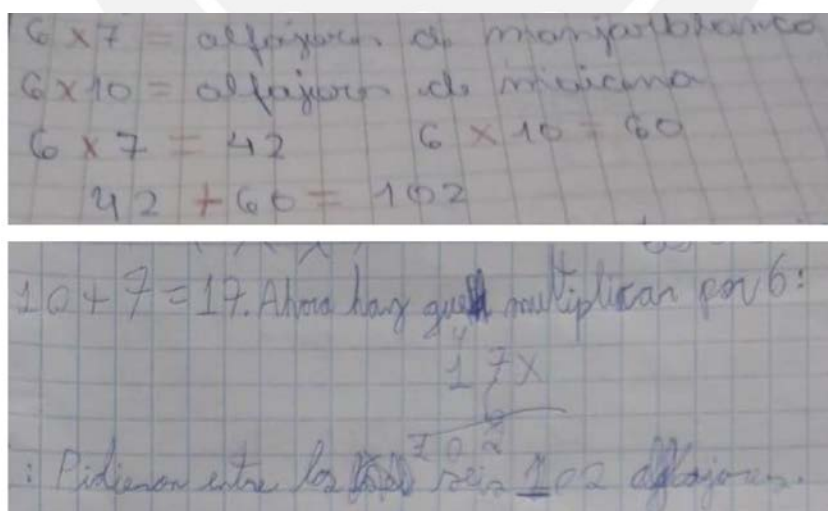 6 x 7 = alfajores de manjarblanco
6 x 10 = alfajores de maicena
6 x 7 = 42 6 x 10 = 60
42 + 60 = 102
10 + 7 = 17. Ahora hay que multiplicar por 6:
4
17x
6
102
: Pidieron entre los seis 102 alfajores.